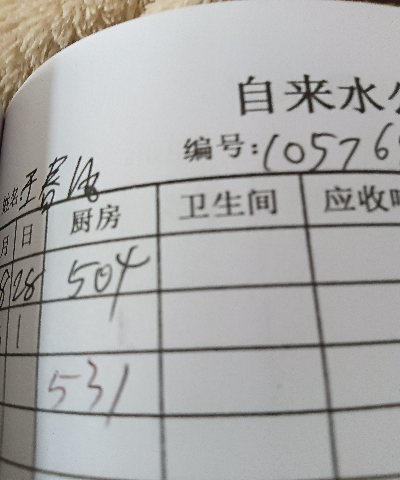 自来水
编号:105769
姓名:王春
月 日 厨房 卫生间 应收
8 28 504
1
531